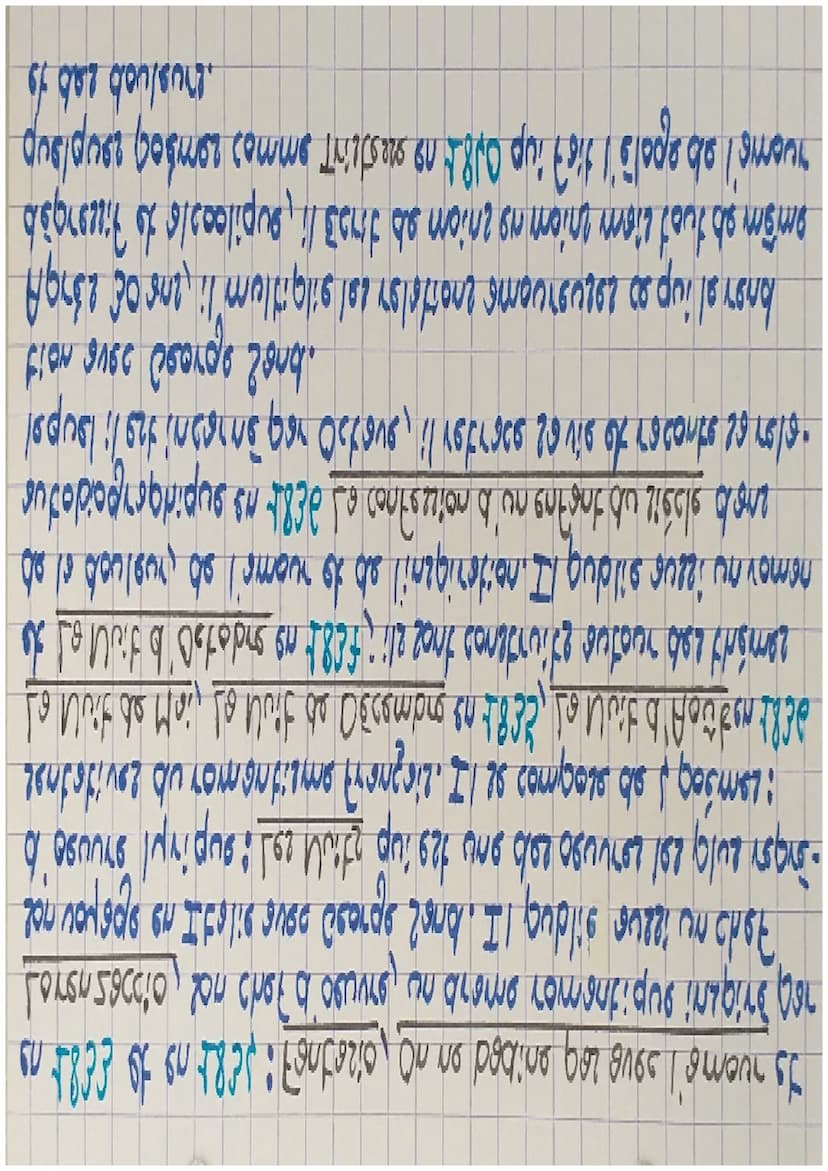 en 1833 et en 1834 : Fantasio, On ne badine pas avec l'amour et
Lorenzaccio, son chef d'oeuvre, un drame romantique inspiré par
son voyage en Italie avec George Sand. Il publie aussi un chef
d'oeuvre lyrique : Les Nuits qui est une des oeuvres les plus repré-
sentatives du romantisme français. Il se compose de 4 poèmes :
La Nuit de Mai, La Nuit de Décembre en 1835, La Nuit d'Août en 1836
et La Nuit d'Octobre en 1837 ; ils sont construits autour des thèmes
de la douleur, de l'amour et de l'inspiration. Il publie aussi un roman
autobiographique en 1836 La confession d'un enfant du siècle dans
lequel il est incarné par Octave, il retrace sa vie et raconte sa rela-
tion avec George Sand.
Après 30 ans, il multiplie les relations amoureuses ce qui le rend
dépressif et alcoolique, il écrit de moins en moins mais tout de même
quelques poèmes comme Tristesse en 1840 qui fait l'éloge de l'amour
et des douleurs.